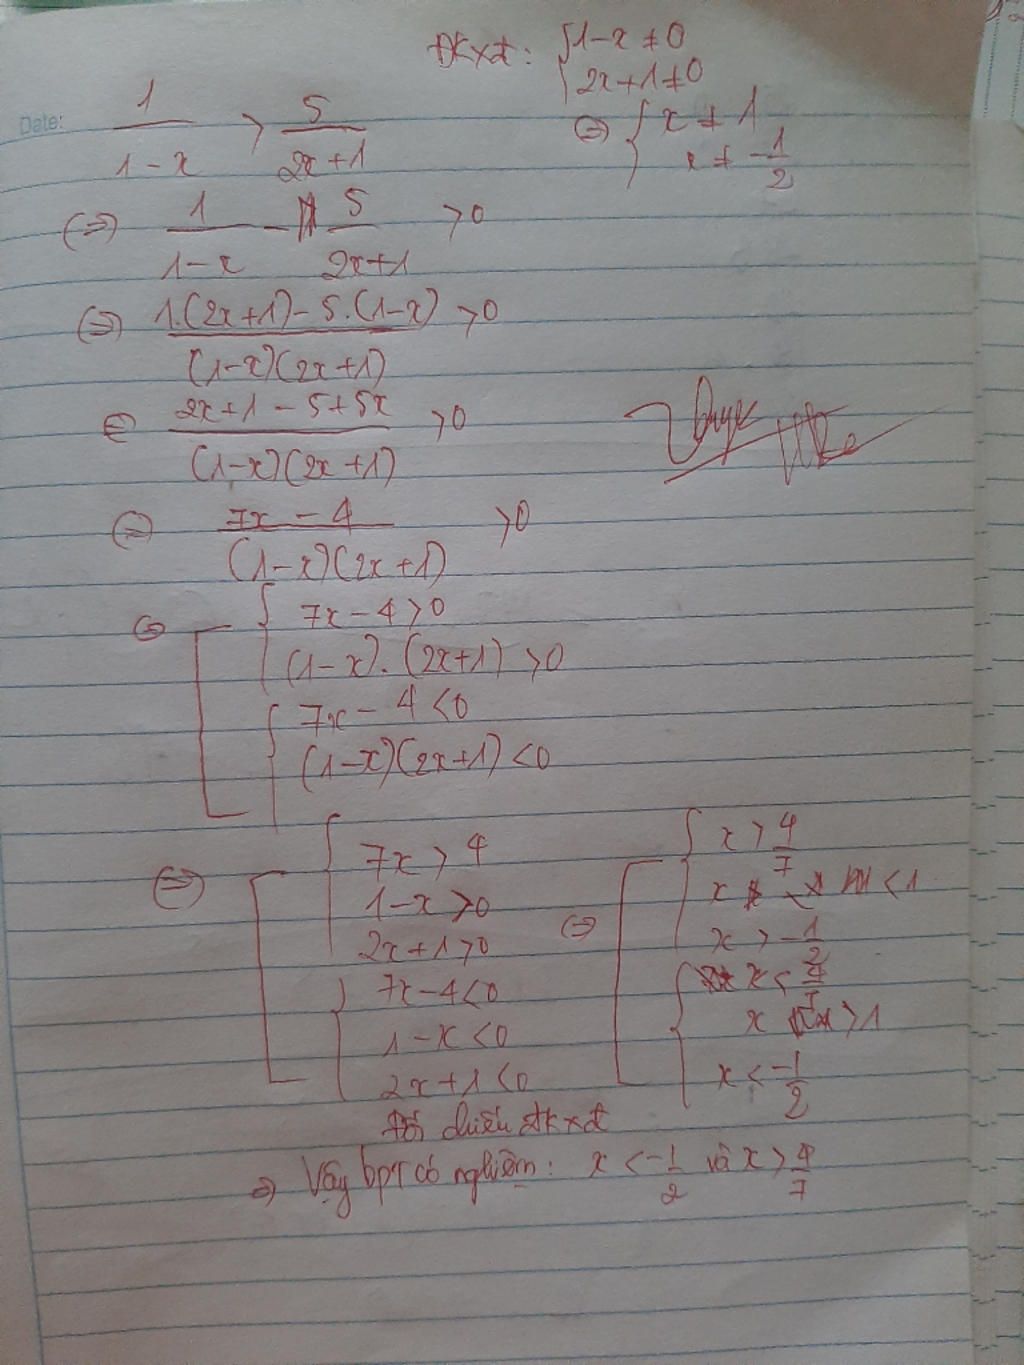 Đkxđ: { 1-x ≠ 0
2x+1 ≠ 0
⇔ { x ≠ 1
x ≠ -1/2
Date:
1/(1-x) > 5/(2x+1)
(⇒) 1/(1-x) - 5/(2x+1) > 0
⇔ (1.(2x+1) - 5.(1-x))/((1-x)(2x+1)) > 0
⇔ (2x+1-5+5x)/((1-x)(2x+1)) > 0
⇔ (7x-4)/((1-x)(2x+1)) > 0
⇔ [ { 7x-4 > 0
(1-x).(2x+1) > 0
{ 7x-4 < 0
(1-x)(2x+1) < 0
⇔ [ { 7x > 4
1-x > 0
2x+1 > 0
{ 7x-4 < 0
1-x < 0
2x+1 < 0
⇔ [ { x > 4/7
x < 1
x > -1/2
{ x < 4/7
x > 1
x < -1/2
Đối chiếu đkxđ
⇒ Vậy bpt có nghiệm: x < -1/2 và x > 4/7